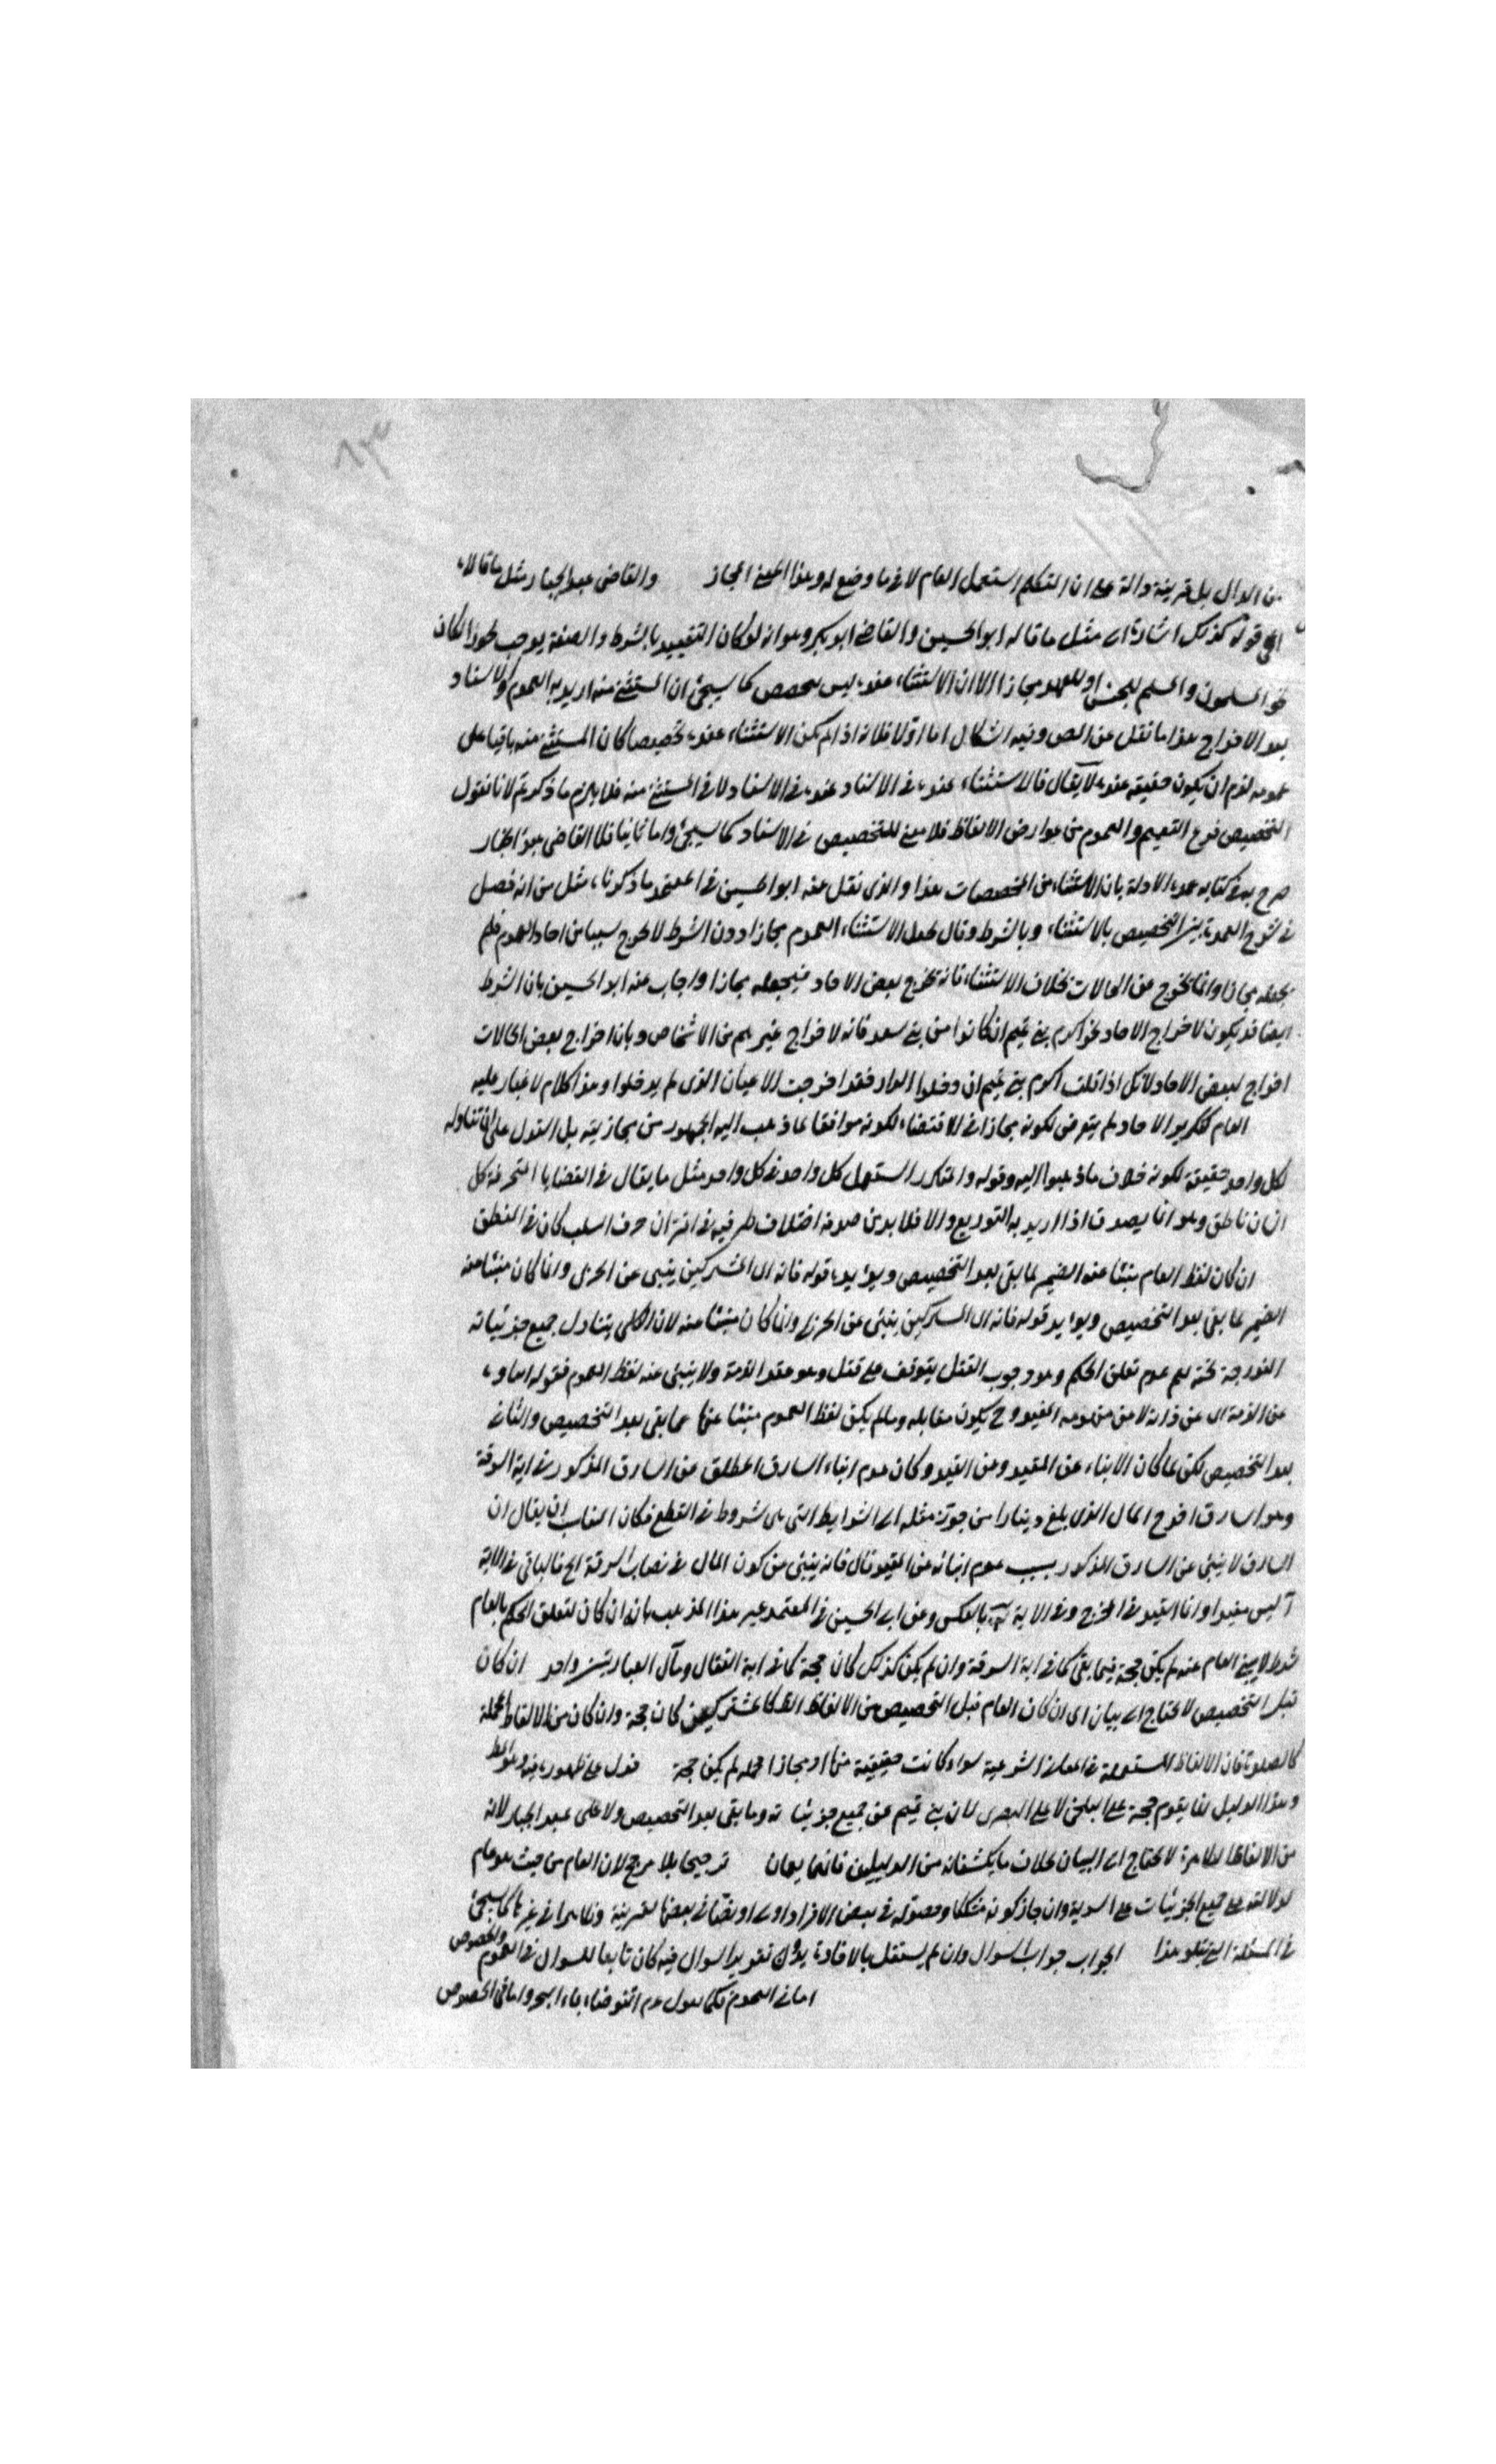 ٨٣
من الدال بل قرينة دالة على ان المتكلم استعمل العام لا في ما وضع له وهذا معنى المجاز والقاضي عبد الجبار مثل ما قالاه
الى قوله كذلك اشارة الى مثل ما قاله ابو الحسين والقاضي ابو بكر وهو انه لو كان التقييد بالشرط والصفة يوجب تجوزا لكان
نحو المسلمون والمسلم للجنس او للعهد مجازا الا ان الاستثناء عنده ليس بتخصص كما سيجئ ان المستثنى منه اريد به العموم والاسناد
بعد الاخراج هذا ما نقل عن المص وفيه اشكال اما اولا فلانه اذا لم يكن الاستثناء عنده تخصيصا كان المستثنى منه باقيا على
عمومه لزم ان يكون حقيقة عنده لا يقال فالاستثناء عنده في الاسناد عنده في الاسناد لا في المستثنى منه فلا يلزم ما ذكرتم لانا نقول
التخصيص فرع التعميم والعموم من عوارض الالفاظ فلا معنى للتخصيص في الاسناد كما سيجئ واما ثانيا فلان القاضي عبد الجبار
صرح به في كتابه عمد الادلة بان الاستثناء من المخصصات هذا والذي نقل عنه ابو الحسين في المعتمد ما ذكرناه مثل من انه فصل
في شرح العمد بين التخصيص بالاستثناء وبالشرط وقال يجعل الاستثناء العموم مجازا دون الشرط لا يخرج شيئا من احاد العموم فلم
يجعله مجازا وانما يخرج من الحالات بخلاف الاستثناء فانه يخرج بعض الاحاد فيجعله مجازا واجاب عنه ابو الحسين بان الشرط
ايضا قد يكون لاخراج الاحاد نحو اكرم بني تميم ان كانوا من بني سعد فانه لاخراج غيرهم من الاشخاص وبان اخراج بعض الحالات
اخراج لبعض الاحاد لانك اذا قلت اكرم بني تميم ان دخلوا الدار فقد اخرجت الاعيان الذي لم يدخلوا وهذا كلام لا غبار عليه
العام كتكرير الاحاد لم يتعرض لكونه مجازا في الاقتضاء لكونه موافقا لما ذهب اليه الجمهور من مجازيته بل القول على ان تناوله
لكل واحد حقيقة لكونه خلاف ما ذهبوا اليه وقوله والمتكرر استعمل كل واحد في كل واحد مثل ما يقال في القضايا المتحرفة كل
انسان ناطق وهو انما يصدق اذا اريد به التوزيع والا فلا بد من صدقه اختلاف طرفيه في اقتران حرف السلب كان في النطق
ان كان لفظ العام منبئا عنه الضمير لما بقي بعد التخصيص ويؤيده قوله فانه اى المشركين ينبئ عن الحربى وانما كان منبئا عنه
الضمير لما بقي بعد التخصيص ويؤيد قوله فانه اى المشركين ينبئ عن الحربى وانما كان منبئا عنه لان الكلى يتناول جميع جزئياته
المندرجة تحته نعم عدم تعلق الحكم وهو وجوب القتل يتوقف على قتل وهو عقد الذمة ولا ينبئ عنه لفظ العموم فقوله
عن الذمة اى عن ذاته لا من مفهومه المقيد وح يكون مقابله وما لم يكن لفظ العموم منبئا عنها عما بقي بعد التخصيص والثاني
بعد التخصيص لكن لما كان الانباء عن المقيد وعن القيد وكان عدم انباء السارق المطلق عن السارق المذكور في اية السرقة
وهو السارق المال الذي بلغ دينارا من حرز مثله الى الشرايط التي هي شروط في القطع فكان المناسب ان يقال ان
السارق لا ينبئ عن السارق المذكور بسبب عدم انبائه عن القيد قال فانه ينبئ من كون المال في نصاب السرقة الخ فالباقي في الاية
ليس مقيدا وانما القيد في المخرج وفي الاية بالعكس وعن ابي الحسين في المعتمد عبر هذا المذهب بانه ان كان لتعلق الحكم بالعام
شرط لا ينبئ العام عنه لم يكن حجة فيما بقي كما في اية السرقة وان لم يكن كذلك كان حجة كما في اية القتال ومآل العبارتين واحد ان كان
قبل التخصيص لا يحتاج الى بيان اى ان كان العام قبل التخصيص من الالفاظ كالمشركين كان حجة وان كان من الالفاظ المجملة
كالصلوة فان الالفاظ المستعملة في المعاني الشرعية سواء كانت حقيقة منها او مجازا مجملة لم يكن حجة فدل على ظهوره فيه وهو
وهذا الدليل انما يقوم حجة على البلخي لا على البصرى لان بني تميم عن جميع جزئياته وما بقي بعد التخصيص ولا على عبد الجبار لانه
من الالفاظ الظاهرة لا يحتاج الى البيان بخلاف ما يكشفانه من الدليلين فانهما يعمان ترجيحا بلا مرجح لان العام من حيث هو عام
لدلالته على جميع الجزئيات على السوية وان جاز كونه مشككا وحصوله في بعض الافراد اولى او نصا في بعضها لقرينة وظاهرا في غيرها كما سيجئ
في المسئلة التي يتلو هذا الجواب جواب السوال وان لم يستقل بالافادة بدون تقدير السوال فيه كان تابعا للسوال في العموم والخصوص
اما في العموم فكما انتوضاء بماء البحر واما في الخصوص